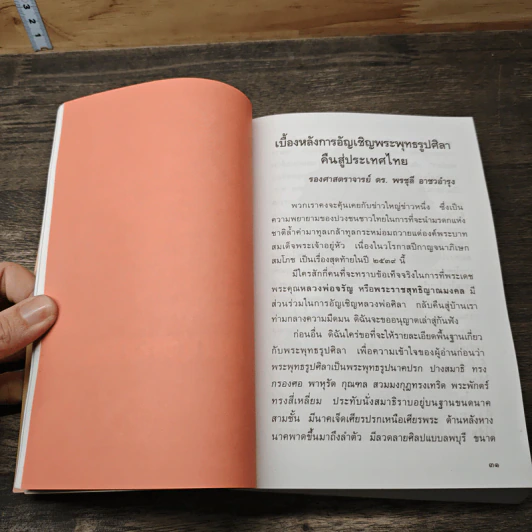 3
2
1
เบื้องหลังการอัญเชิญพระพุทธรูปศิลา
คืนสู่ประเทศไทย
รองศาสตราจารย์ ดร. พรชุลี อาชวอำรุง
พวกเราคงจะคุ้นเคยกับข่าวใหญ่ข่าวหนึ่ง ซึ่งเป็น
ความพยายามของปวงชนชาวไทยในการที่จะนำมรดกแห่ง
ชาติล้ำค่ามาทูลเกล้าทูลกระหม่อมถวายแด่องค์พระบาท
สมเด็จพระเจ้าอยู่หัว เนื่องในวโรกาสปีกาญจนาภิเษก
สมโภช เป็นเรื่องสุดท้ายในปี ๒๕๓๙ นี้
มีใครสักกี่คนที่จะทราบข้อเท็จจริงในการที่พระเดช
พระคุณหลวงพ่อจรัญ หรือพระราชสุทธิญาณมงคล มี
ส่วนร่วมในการอัญเชิญหลวงพ่อศิลา กลับคืนสู่บ้านเรา
ท่ามกลางความมืดมน ดิฉันจะขออนุญาตเล่าสู่กันฟัง
ก่อนอื่น ดิฉันใคร่ขอที่จะให้รายละเอียดพื้นฐานเกี่ยว
กับพระพุทธรูปศิลา เพื่อความเข้าใจของผู้อ่านก่อนว่า
พระพุทธรูปศิลาเป็นพระพุทธรูปนาคปรก ปางสมาธิ ทรง
กรองศอ พาหุรัด กุณฑล สวมมงกุฎทรงเทริด พระพักตร์
ทรงสี่เหลี่ยม ประทับนั่งสมาธิราบอยู่บนฐานขนดนาค
สามชั้น มีนาคเจ็ดเศียรปรกเหนือเศียรพระ ด้านหลังหาง
นาคพาดขึ้นมาถึงลำตัว มีลวดลายศิลปแบบลพบุรี ขนาด
๓๑